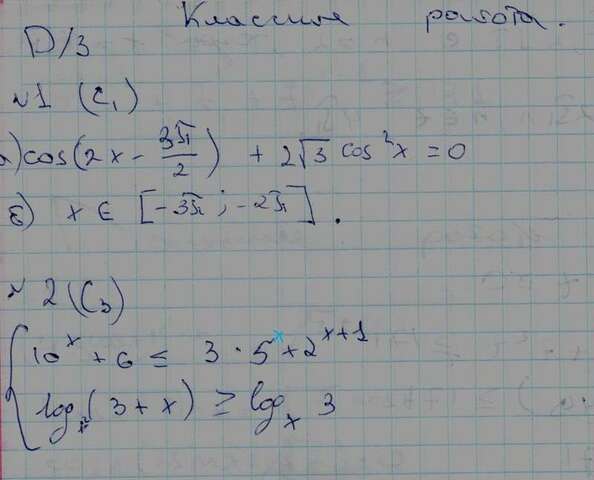 Классная работа.
D/З
№1 (C₁)
а) cos(2x - 3π/2) + 2√3 cos²x = 0
б) x ∈ [-3π; -2π].
№2 (C₃)
10ˣ + 6 ≤ 3 · 5ˣ + 2ˣ⁺¹
log_x²(3 + x) ≥ log_x 3